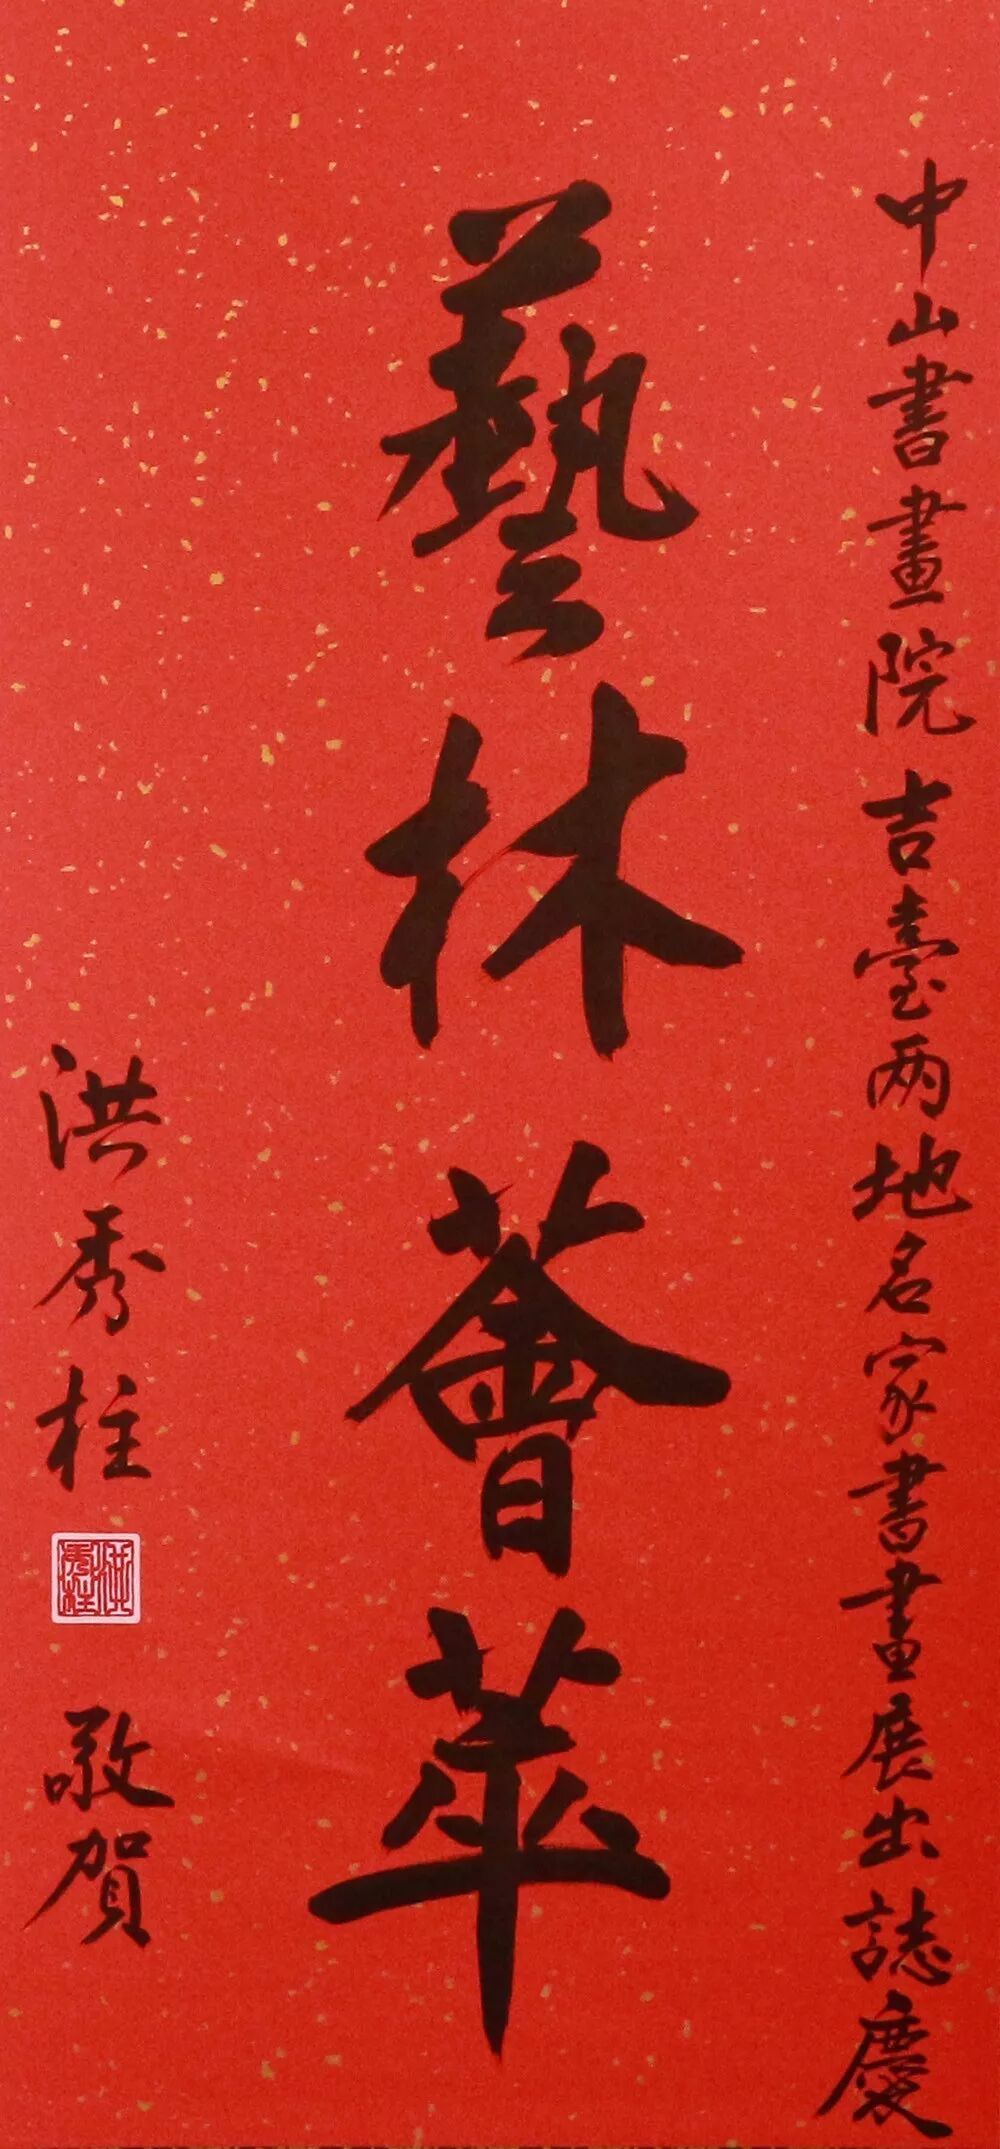 中山書畫院吉臺两地名家書畫展出誌慶
藝林薈萃
洪秀柱
敬賀
洪秀柱